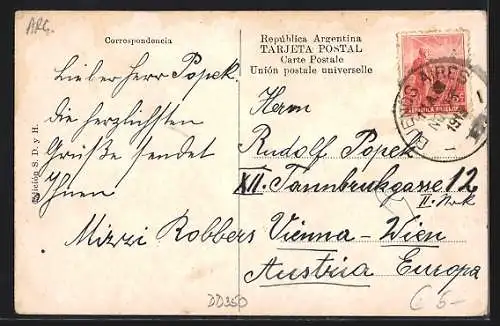 ARG.
Correspondencia
República Argentina
TARJETA POSTAL
Carte Postale
Unión postale universelle
Lieber Herr Popek
die herzlichsten
Grüße sendet
Ihnen
Mizzi Robbers
Herrn
Rudolf Popek
XII. Tannbrukgasse 12
Vienna - Wien
Austria Europa
Edición S. D. y H.
BUENOS AIRES
DD350